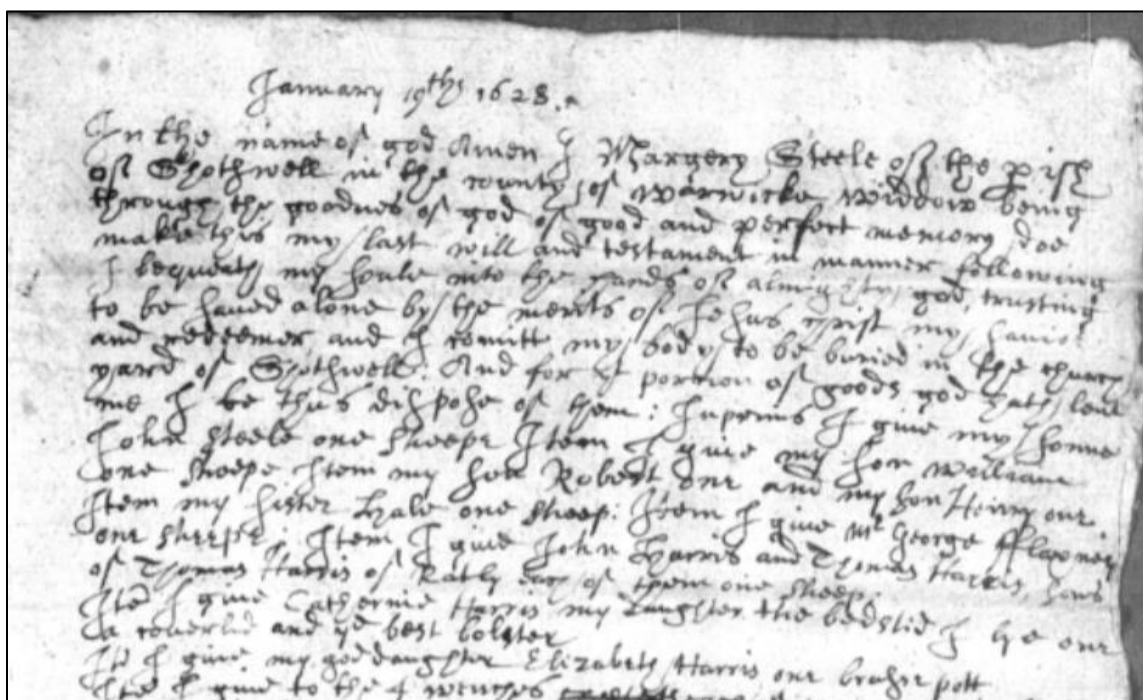 January 19th 1628.
In the name of god Amen I Margery Steele of the pish
of Shothwell in the county of warwicke widdow being
through the goodnes of god of good and perfect memory doe
make this my last will and testament in manner following
I bequeath my soule into the hands of almighty god, trusting
to be saved alone by the merits of Jesus Christ my savior
and redeemer and I comitt my body to be buried in the church
yard of Shothwell. And for y portion of goods god hath lent
me I doe thus dispose of them: Inprimis I give my sonne
John Steele one sheepe Item I give my son william
one sheepe Item my son Robert one and my son Henry one
Item my sister Hale one sheep: Item I give Mr George fflaxney
one sheepe: Item I give John Harris and Thomas Harris, sons
of Thomas Harris of Ratly each of them one sheep.
Ite I give Catherine Harris my daughter the bedstid I lye one
a coverlid and ye best bolster
Ite I give my goddaughter Elizabeth Harris one brasse pott
Ite I give to the 4 wenches